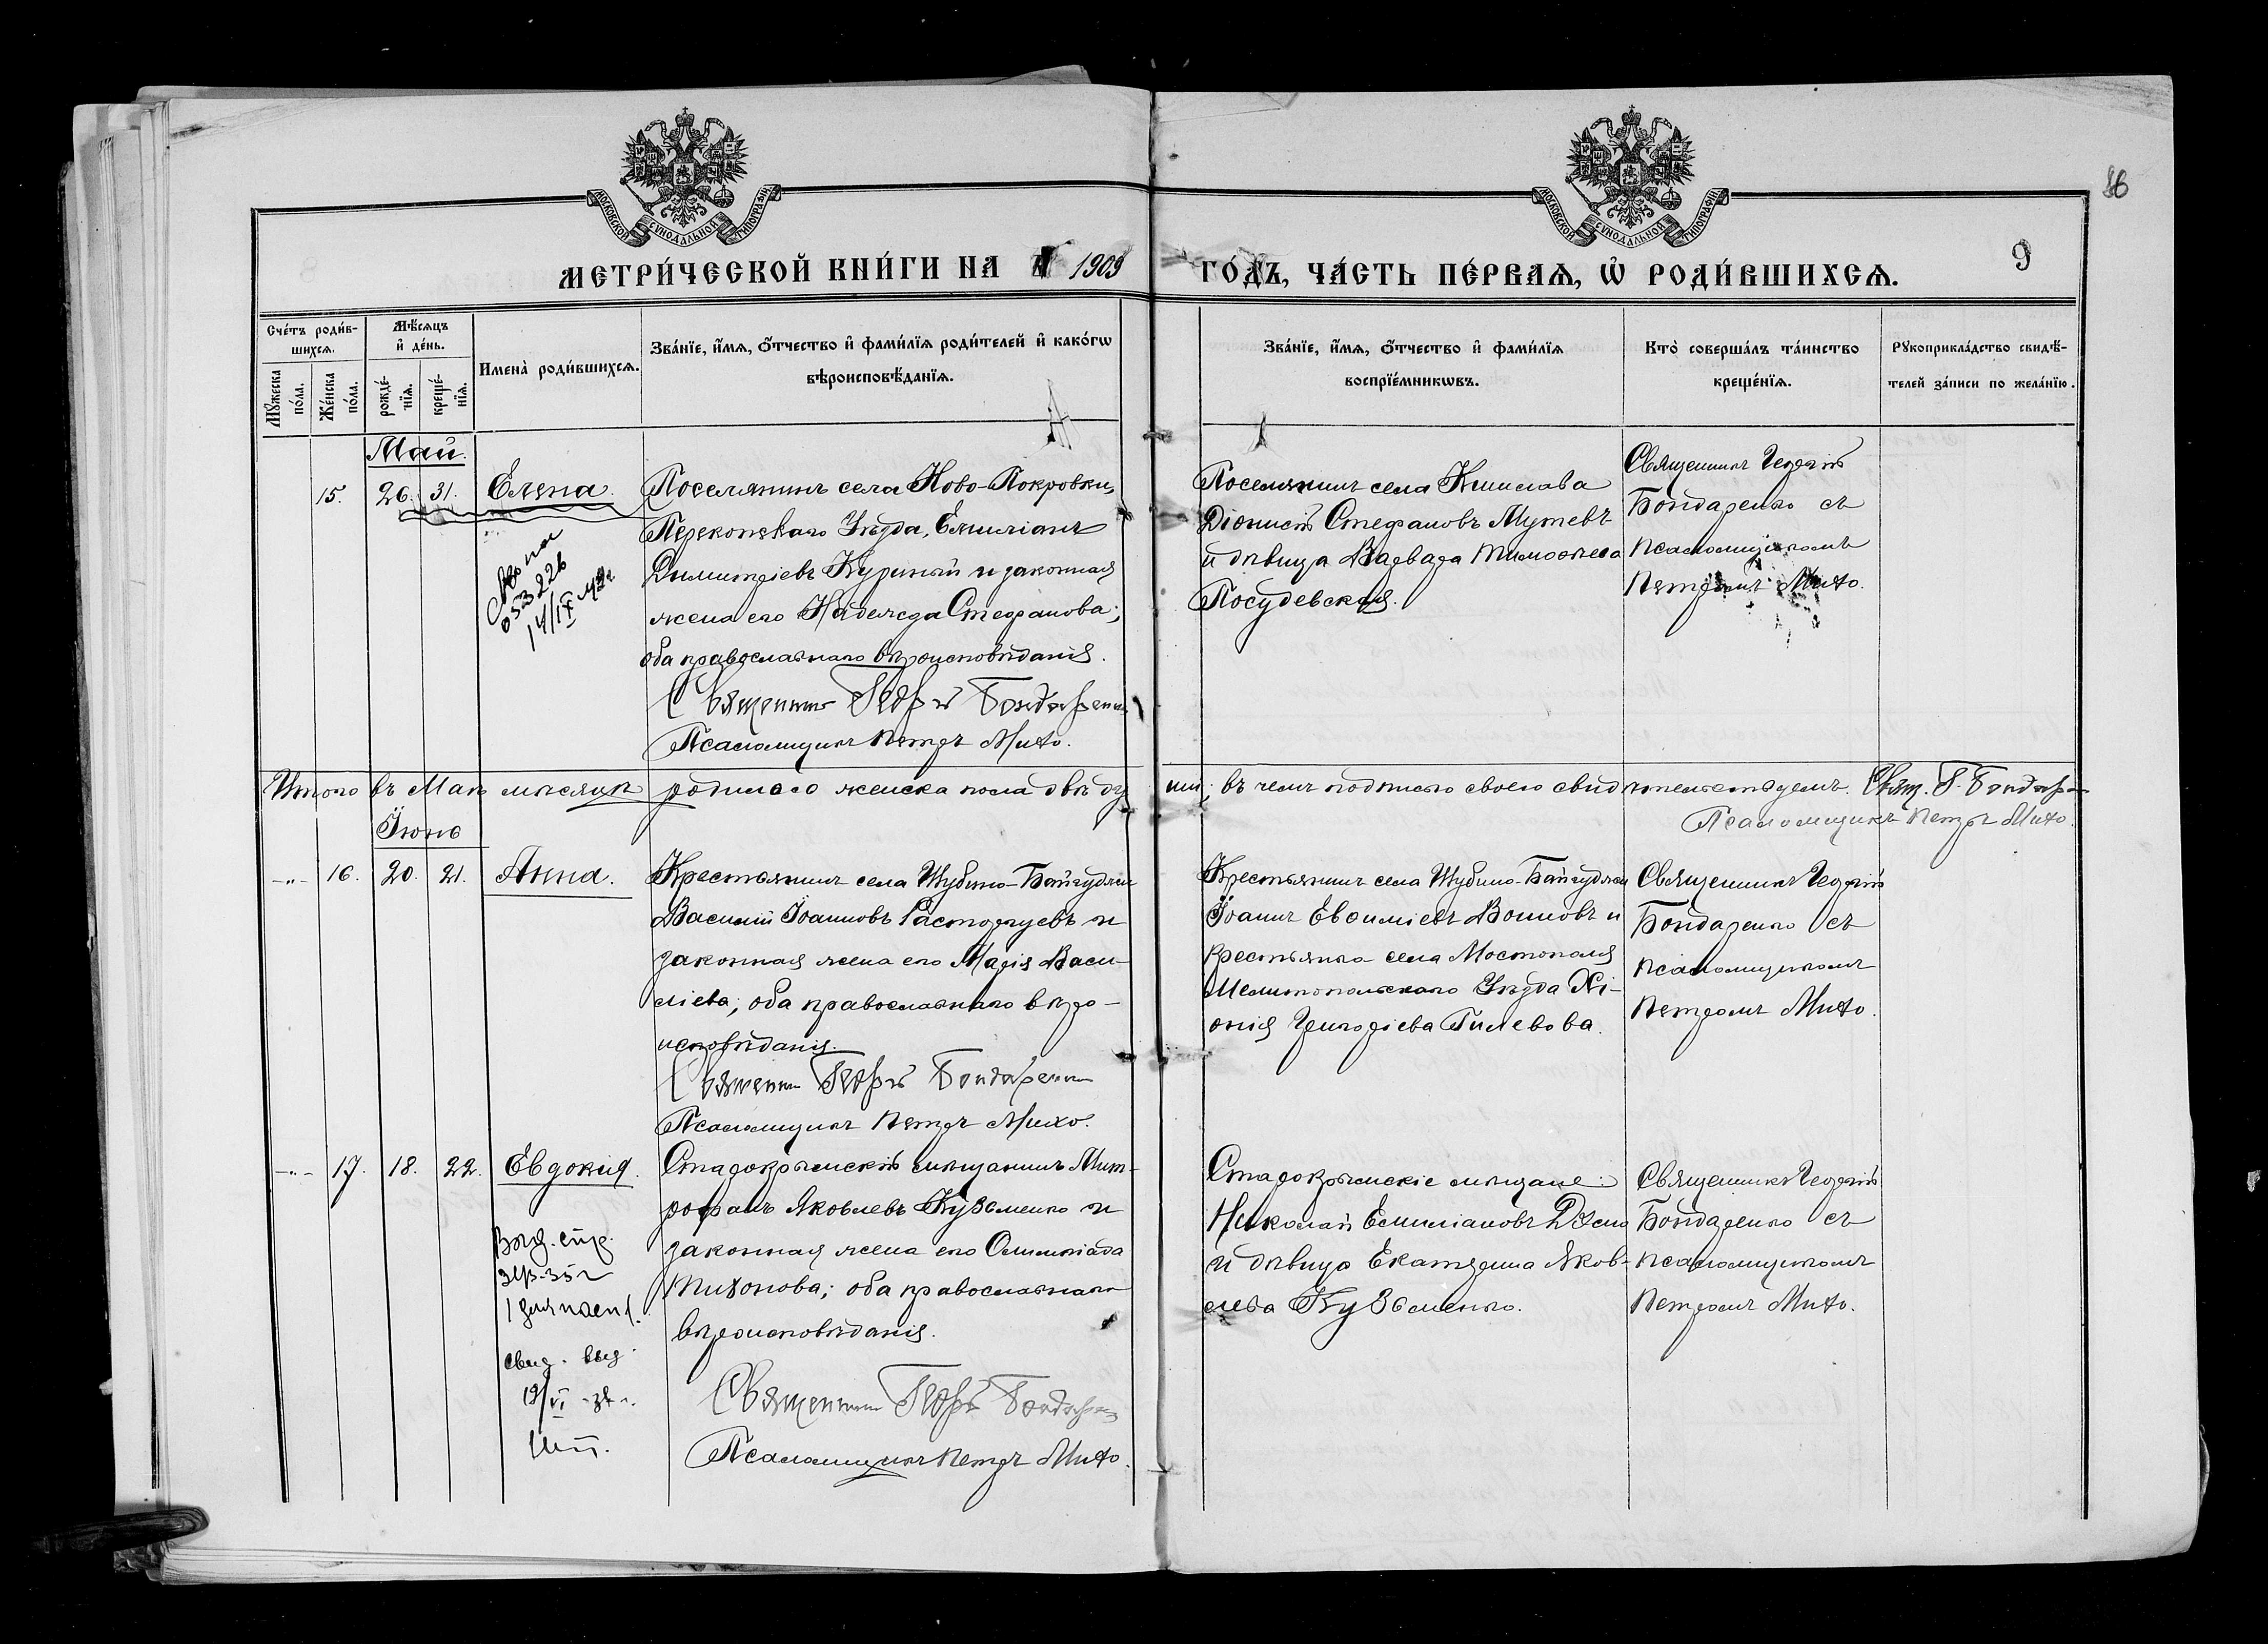 МОСКОВСКОЙ СѴНОДАЛЬНОЙ ТИПОГРАФІИ.
МОСКОВСКОЙ СѴНОДАЛЬНОЙ ТИПОГРАФІИ.
86
9
МЕТРИ́ЧЕСКОЙ КНИ́ГИ НА 1909
ГО́ДЪ, ЧА́СТЬ ПЕ́РВАѦ, Ѡ҆ РОДИ́ВШИХСѦ.
Сче́тъ роди́в-
шихсѧ.
Мꙋ́жеска по́ла.
Же́нска по́ла.
Мѣ́сѧцъ
и҆ де́нь.
рожде́-
нїѧ.
креще́-
нїѧ.
Имена̀ роди́вшихсѧ.
Зва́нїе, и҆́мѧ, ѻ҆́тчество и҆ фами́лїѧ роди́телей и҆ како́гѡ
вѣроисповѣ́данїѧ.
Зва́нїе, и҆́мѧ, ѻ҆́тчество и҆ фами́лїѧ
воспрїе́мникѡвъ.
Кто̀ соверша́лъ та́инство
креще́нїѧ.
Рꙋкоприкла́дство свидѣ́-
телей за́писи по жела́нїю.
Май.
15. 26. 31. Елена.
Поселянинъ села Ново-Покровки,
Перекопскаго Уѣзда, Емиліанъ
Димитріевъ Куриный и законная
жена его Надежда Стефанова;
оба православнаго вѣроисповѣданія.
Священникъ Георгій Бондаренко
Псаломщикъ Петръ Михо.
053226
14/IX
Поселянинъ села Кишлава
Діонисій Стефановъ Мутевъ
и дѣвица Варвара Тимоѳеева
Посудевская.
Священникъ Георгій
Бондаренко съ
псаломщикомъ
Петромъ Михо.
Итого въ Маѣ мѣсяцѣ родилось женска пола двѣ ду
ши; въ чемъ подписью своею свидѣтельствуемъ. Свящ. Г. Бондаренко
Псаломщикъ Петръ Михо.
Іюнь
-"- 16. 20. 21. Анна.
Крестьянинъ села Шубино-Байгуджи
Василій Іоанновъ Расторгуевъ и
законная жена его Марія Васи-
ліева; оба православнаго вѣро-
исповѣданія.
Священникъ Георгій Бондаренко
Псаломщикъ Петръ Михо.
Крестьянинъ села Шубино-Байгуджи
Іоаннъ Евѳиміевъ Воиновъ и
крестьянка села Мостополя
Мелитопольскаго Уѣзда Хі-
онія Григоріева Гилевова.
Священникъ Георгій
Бондаренко съ
псаломщикомъ
Петромъ Михо.
-"- 17. 18. 22. Евдокія.
Старокрымскій мѣщанинъ Мит-
рофанъ Яковлевъ Кузьменко и
законная жена его Олимпіада
Тихонова; оба православнаго
вѣроисповѣданія.
Священникъ Георгій Бондаренко
Псаломщикъ Петръ Михо.
свид. выд.
19/VI
Старокрымскіе мѣщане:
Николай Емиліановъ
и дѣвица Екатерина Яков-
лева Кузьменко.
Священникъ Георгій
Бондаренко съ
псаломщикомъ
Петромъ Михо.